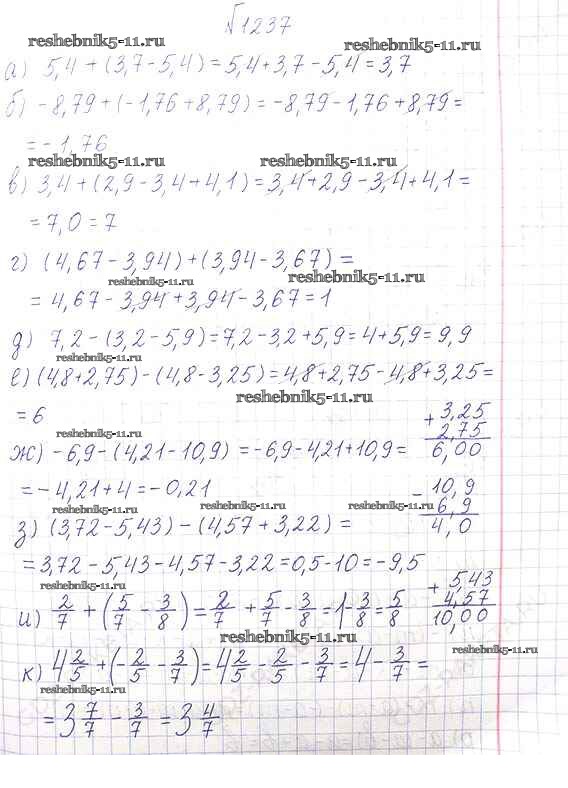 №1237
reshebnik5-11.ru reshebnik5-11.ru
а) 5,4 + (3,7 - 5,4) = 5,4 + 3,7 - 5,4 = 3,7
б) -8,79 + (-1,76 + 8,79) = -8,79 - 1,76 + 8,79 =
= -1,76
reshebnik5-11.ru reshebnik5-11.ru
в) 3,4 + (2,9 - 3,4 + 4,1) = 3,4 + 2,9 - 3,4 + 4,1 =
= 7,0 = 7
г) (4,67 - 3,94) + (3,94 - 3,67) =
reshebnik5-11.ru reshebnik5-11.ru
= 4,67 - 3,94 + 3,94 - 3,67 = 1
д) 7,2 - (3,2 - 5,9) = 7,2 - 3,2 + 5,9 = 4 + 5,9 = 9,9
reshebnik5-11.ru
е) (4,8 + 2,75) - (4,8 - 3,25) = 4,8 + 2,75 - 4,8 + 3,25 =
reshebnik5-11.ru
= 6
+ 3,25
2,75
6,00
reshebnik5-11.ru
ж) -6,9 - (4,21 - 10,9) = -6,9 - 4,21 + 10,9 =
= -4,21 + 4 = -0,21
- 10,9
6,9
4,0
reshebnik5-11.ru reshebnik5-11.ru reshebnik5-11.ru
з) (3,72 - 5,43) - (4,57 + 3,22) =
= 3,72 - 5,43 - 4,57 - 3,22 = 0,5 - 10 = -9,5
+ 5,43
4,57
10,00
reshebnik5-11.ru
и) 2/7 + (5/7 - 3/8) = 2/7 + 5/7 - 3/8 = 1 - 3/8 = 5/8
reshebnik5-11.ru
к) 4 2/5 + (- 2/5 - 3/7) = 4 2/5 - 2/5 - 3/7 = 4 - 3/7 =
reshebnik5-11.ru reshebnik5-11.ru
= 3 7/7 - 3/7 = 3 4/7